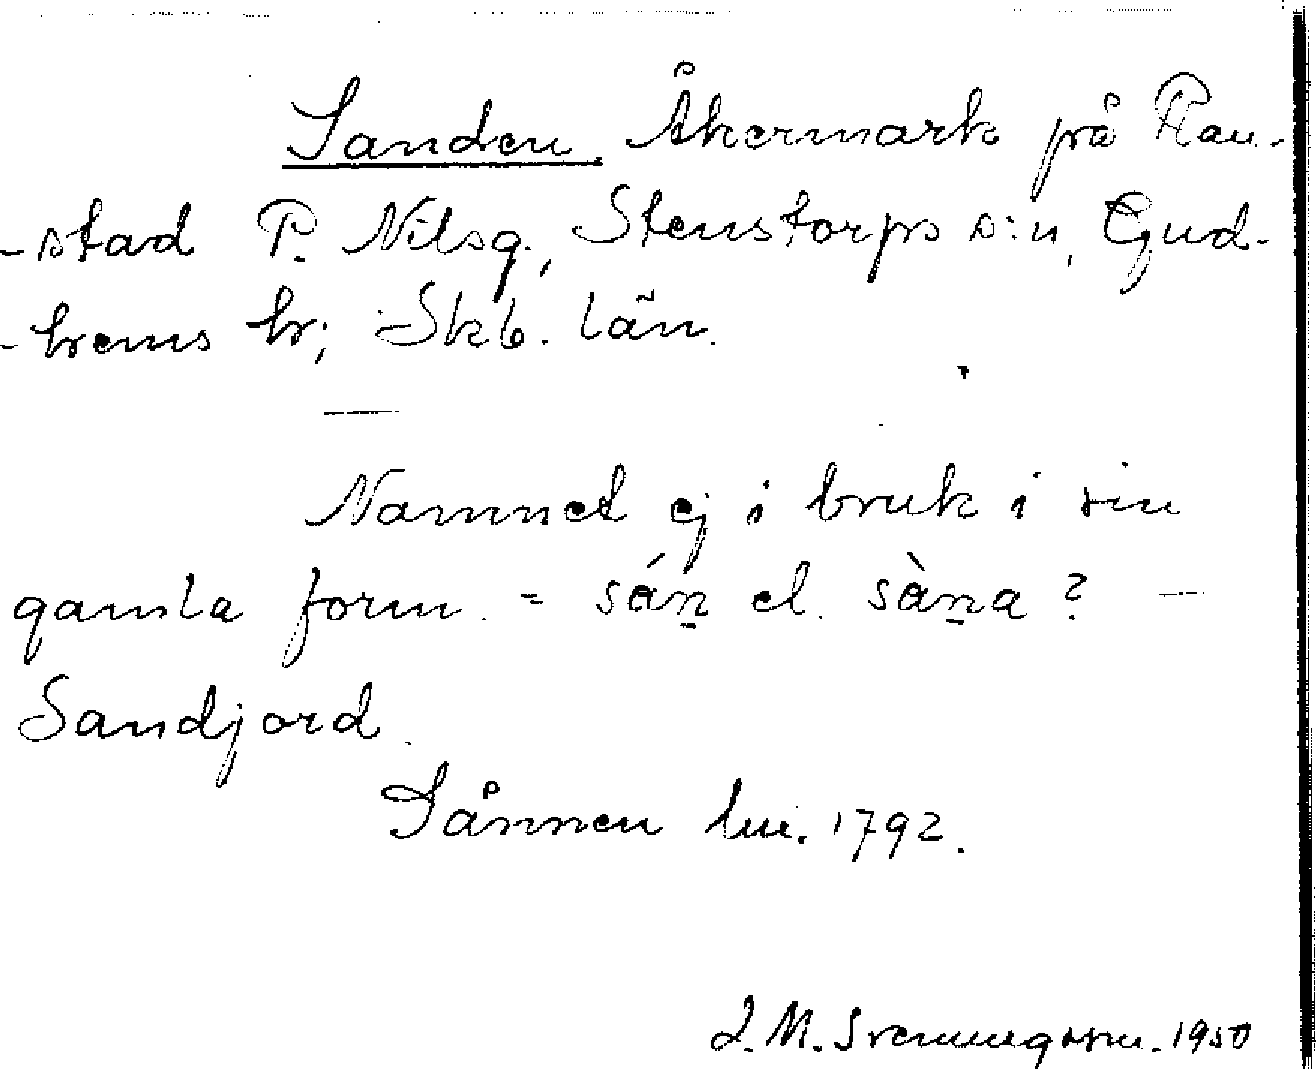 Sanden. Åkermark på Ran-
-stad P. Nilsg., Stenstorps s:n, Gud-
-hems hr; Skb. län.
Namnet ej i bruk i sin
gamla form = sán̲ el. sàn̲a? —
Sandjord.
Sånnen lm. 1792.
J. M. Svenningsson. 1950